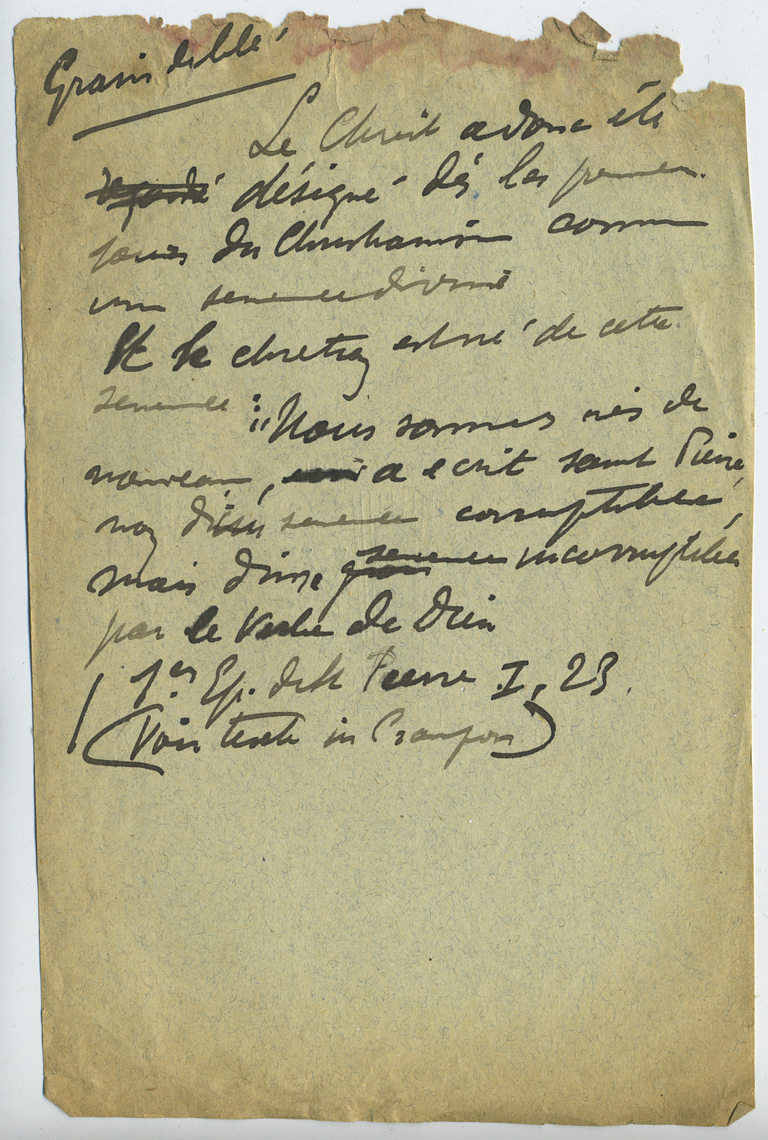 Grain de blé
Le Christ a donc été
regardé désigné dès les premiers
jours du Christianisme comme
une semence divine
Et le chrétien est né de cette
semence : "Nous sommes nés de
nouveau, a écrit saint Pierre,
non d'une semence corruptible,
mais d'une grain semence incorruptible
par le Verbe de Dieu
1er Ep. de St Pierre I, 23.
(Voir texte in Crampon)